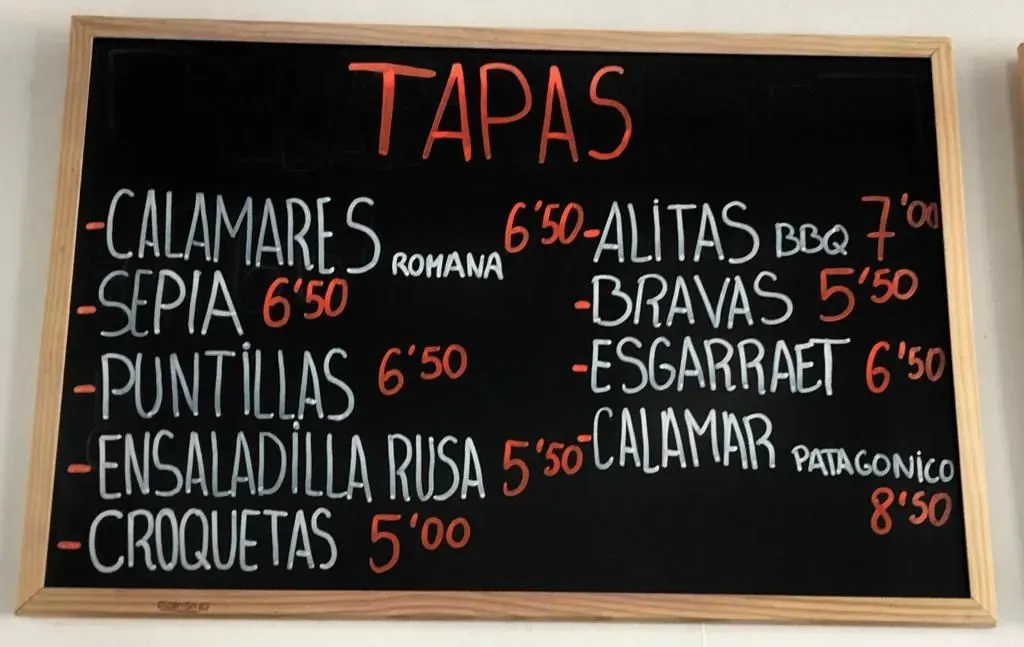 TAPAS
-CALAMARES ROMANA 6'50
-SEPIA 6'50
-PUNTILLAS 6'50
-ENSALADILLA RUSA 5'50
-CROQUETAS 5'00
-ALITAS BBQ 7'00
-BRAVAS 5'50
-ESGARRAET 6'50
-CALAMAR PATAGONICO
8'50